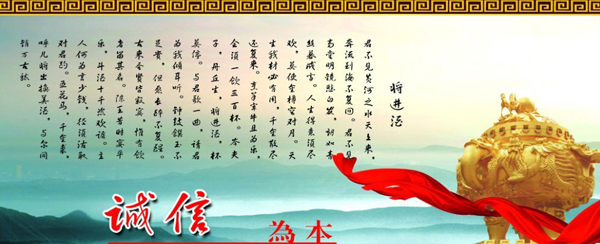 将进酒
君不见黄河之水天上来，
奔流到海不复回。君不见
高堂明镜悲白发，朝如青
丝暮成雪。人生得意须尽
欢，莫使空对月。天
生我材必有用，千金散尽
还复来。烹羊宰牛且为乐，
会须一饮三百杯。岑夫
子，丹丘生，将进酒，杯
莫停。与君歌一曲，请君
为我倾耳听。钟鼓馔玉不
足贵，但愿长醉不复醒。
古来圣贤皆寂寞，惟有饮
者留其名。陈王昔时宴平
乐，斗酒十千恣欢谑。主
人何为言少钱，径须沽取
对君酌。五花马，千金裘，
呼儿将出换美酒，与尔同
销万古愁。
誠信
為本